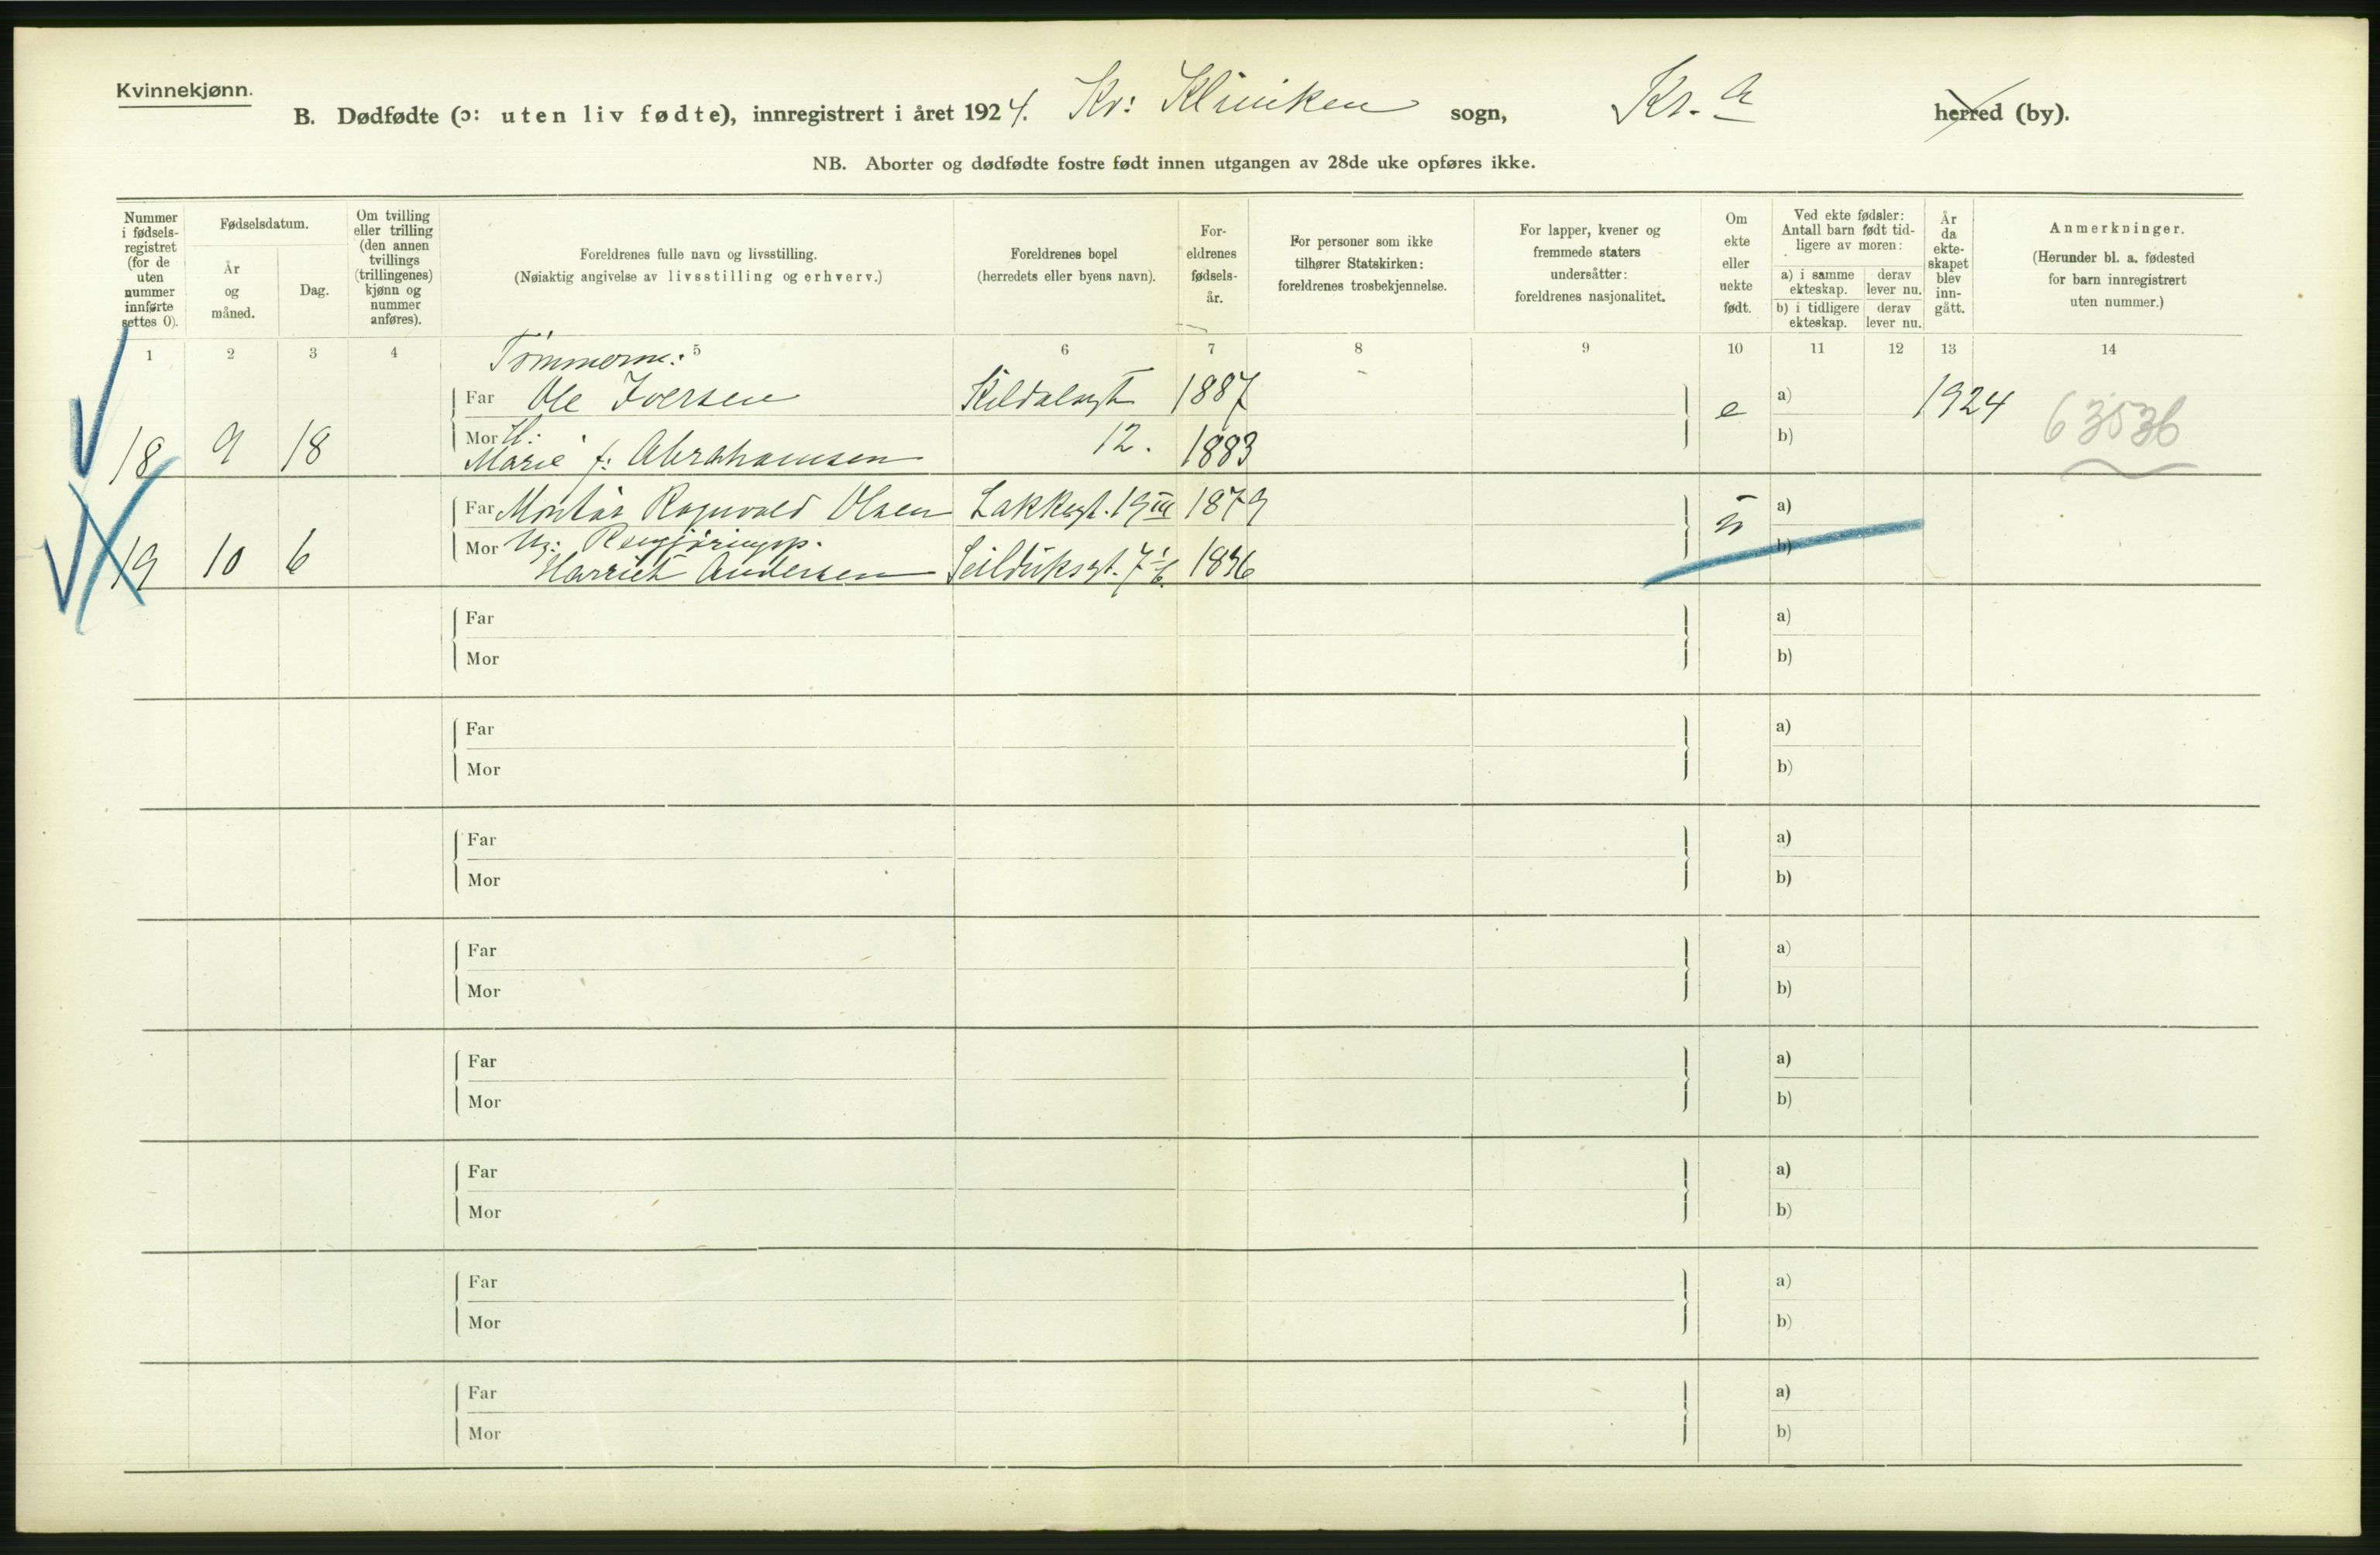 Kvinnekjønn.
B. Dødfødte (ɔ: uten liv fødte), innregistrert i året 1924. Kv: Kliniken sogn, Kr.a herred (by).
NB. Aborter og dødfødte fostre født innen utgangen av 28de uke opføres ikke.
Nummer i fødsels- registret (for de uten nummer innførte settes 0).
Fødselsdatum.
År og måned.
Dag.
Om tvilling eller trilling (den annen tvillings (trillingenes) kjønn og nummer anføres).
Foreldrenes fulle navn og livsstilling.
(Nøiaktig angivelse av livsstilling og erhverv.)
Foreldrenes bopel
(herredets eller byens navn).
For- eldrenes fødsels- år.
For personer som ikke tilhører Statskirken: foreldrenes trosbekjennelse.
For lapper, kvener og fremmede staters undersåtter: foreldrenes nasjonalitet.
Om ekte eller uekte født.
Ved ekte fødsler: Antall barn født tid- ligere av moren:
a) i samme ekteskap.
derav lever nu.
b) i tidligere ekteskap.
derav lever nu.
År da ekte- skapet blev inn- gått.
Anmerkninger.
(Herunder bl. a. fødested for barn innregistrert uten nummer.)
1 2 3 4 5 6 7 8 9 10 11 12 13 14
Tømmerm:
Far Ole Iversen 1887 e a) 1924 63536
18 9 18 Mor H: Marie f: Abrahamsen 12. 1883 b)
Far Montør Ragnvald Olsen Lakkegt. 19 III 1879 u a)
Mor b)
19 10 6 Harriet Andersen Seilduksgt.
Far a)
Mor b)
Far a)
Mor b)
Far a)
Mor b)
Far a)
Mor b)
Far a)
Mor b)
Far a)
Mor b)
Far a)
Mor b)
Far a)
Mor b)